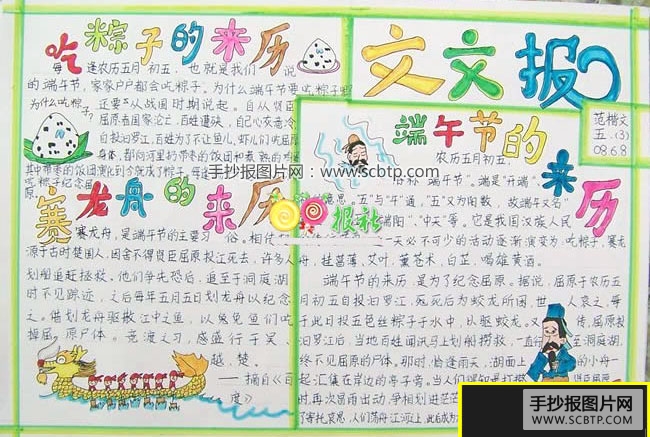 吃粽子的来历
每逢农历五月初五,也就是我们说
的端午节,家家户户都会吃粽子。为什么端午节要吃粽子呢
为什么吃粽子?还要从战国时期说起。
身体,都向河里扔
吃粽子纪念屈原。
赛龙舟的来历
赛龙舟,是端午节的主要习俗。相传
源于古时楚国人,因舍不得贤臣屈原投江死去,许多人
划船追赶拯救。他们争先恐后,追至洞庭湖
时不见踪迹,之后每年五月五日划龙舟以纪念
之。借划龙舟驱散江中之鱼,以免鱼儿们吃
掉屈原尸体。竞渡之习,盛行于吴、
越、楚.
——摘自《百
度》
文文报
范楷文
五.(3)
0868
端午节的来历
农历五月初五,
俗称"端午节"。端是"开端"、
的意思。"五"与"午"通,"五"又为阳数,故端午又名"
端阳"、"中天"等。它是我国汉族人民
一天必不可少的活动逐渐演变为:吃粽子,赛龙
舟,挂菖蒲、艾叶,薰苍术、白芷,喝雄黄酒。
端午节的来历,是为了纪念屈原。据说,屈原于农历五
月初五自投汨罗江,死后为蛟龙所困,世人哀之,每
于此日投五色丝粽子于水中,以驱蛟龙。又传,屈原投
汨罗江后,当地百姓闻讯马上划船捞救,一直行至洞庭湖,
终不见屈原的尸体。那时,恰逢雨天,湖面上的小舟一
起汇集在岸边的亭子旁。当人们得知是打捞贤臣屈原
时,再次冒雨出动,争相划进茫茫
了寄托哀思,人们荡舟江河上,此后
手抄报图片网:www.scbtp.com
报社
手抄报图片网
WWW.SCBTP.COM